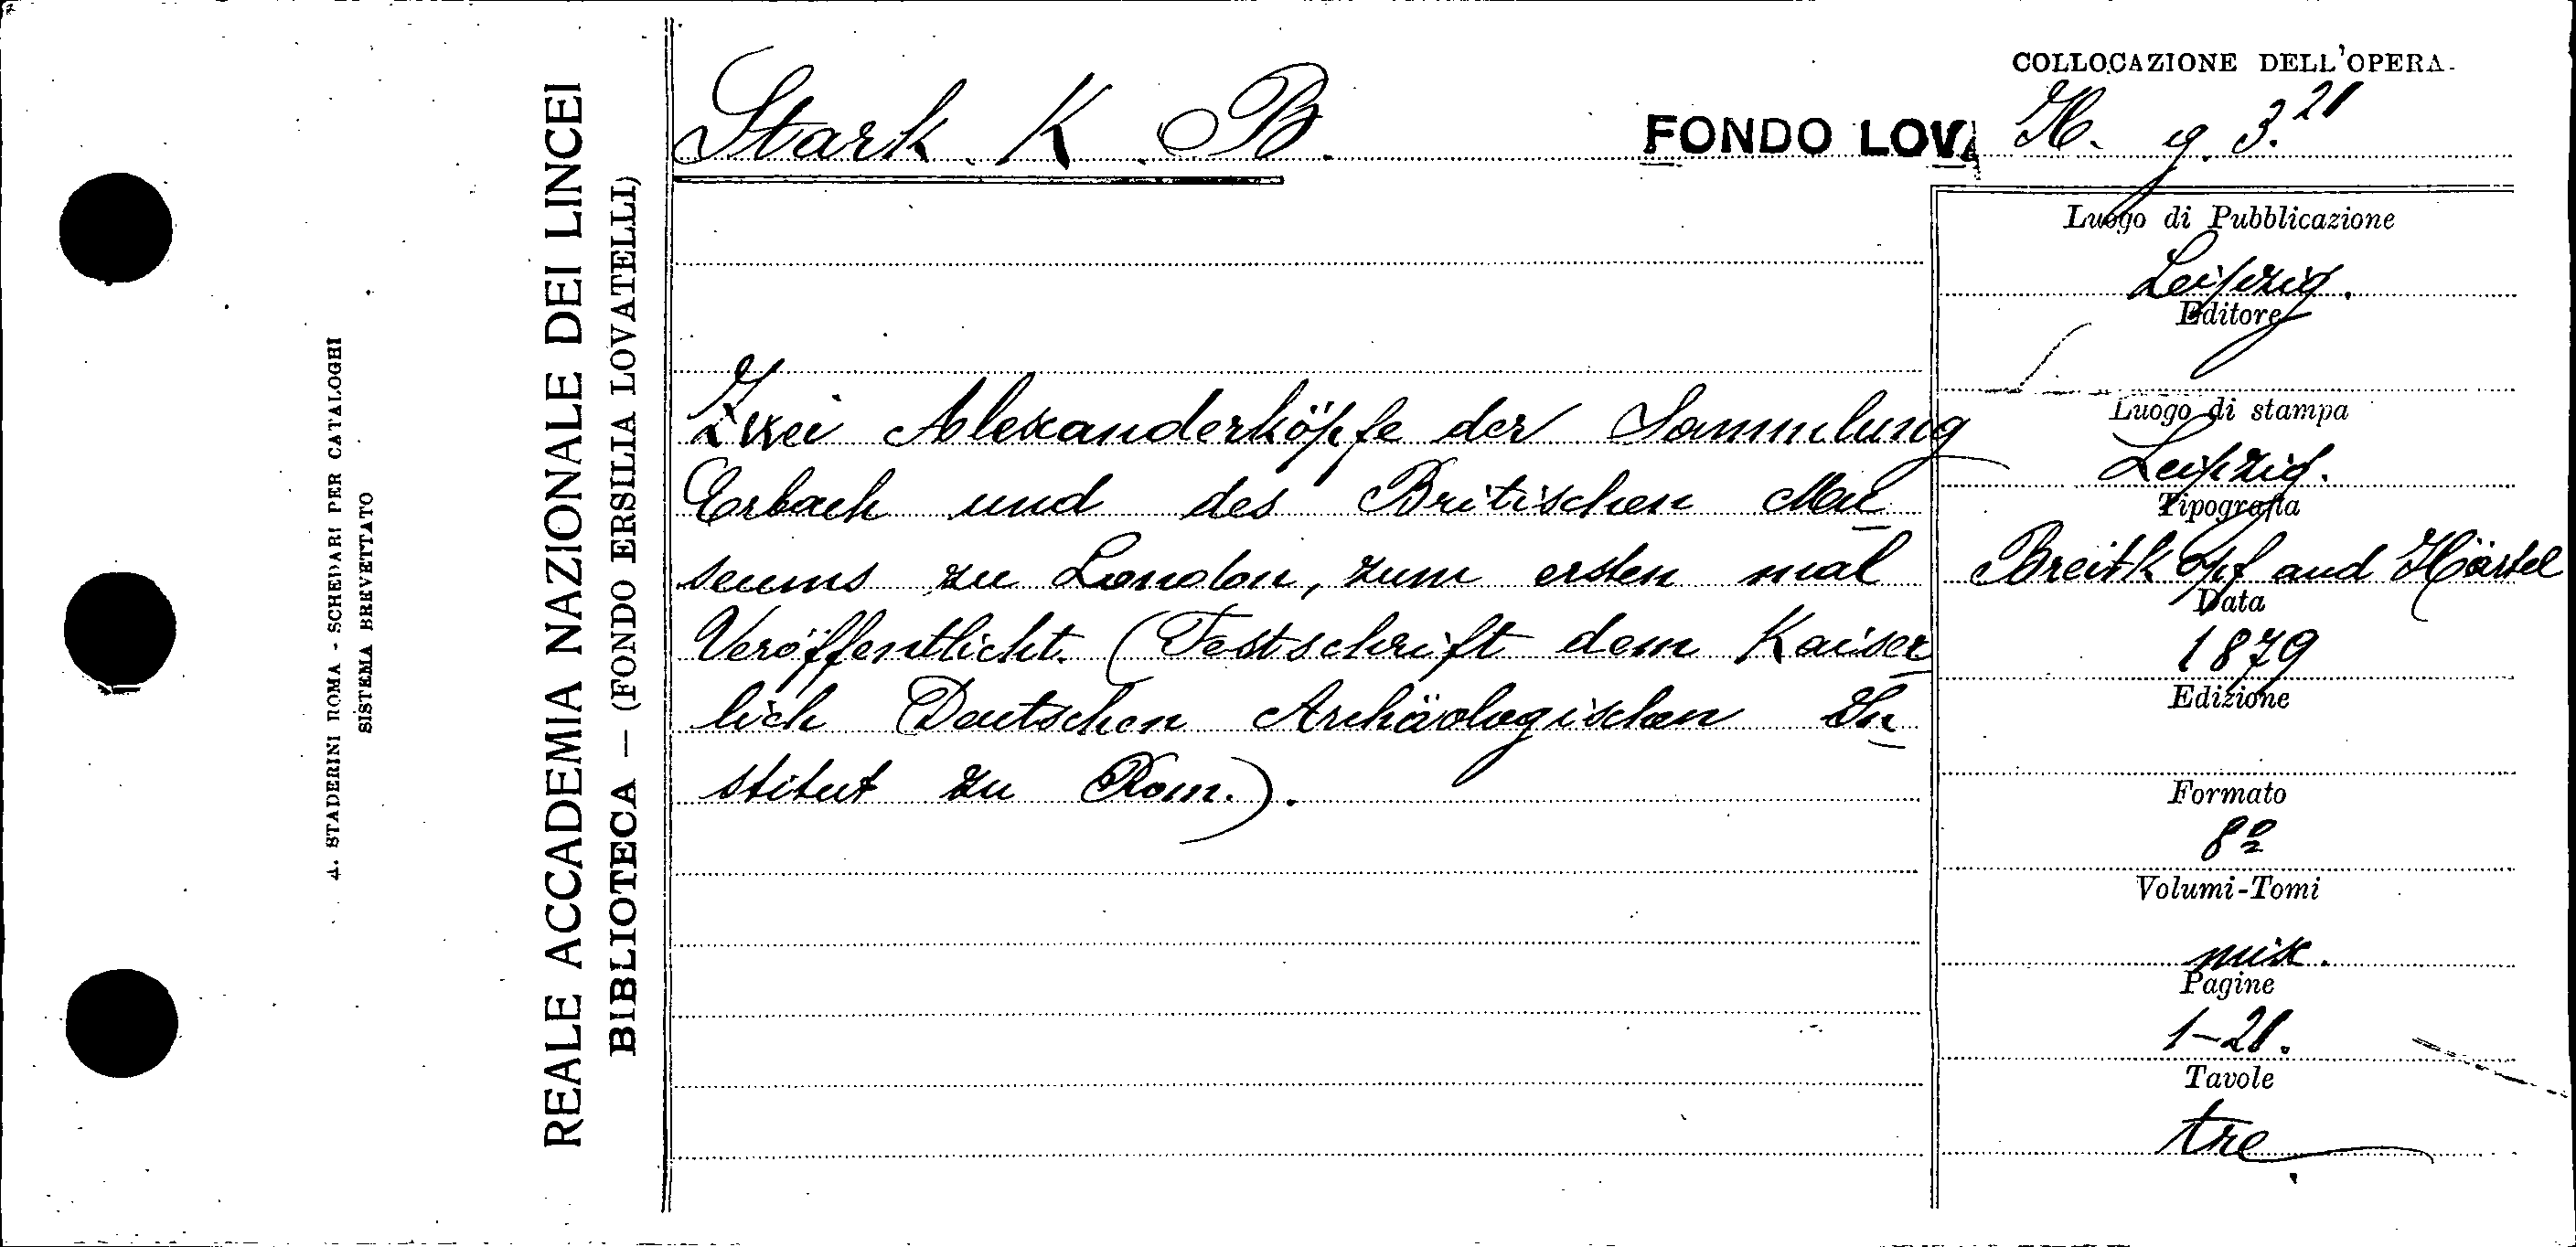 A. STADERINI ROMA - SCHEDARI PER CATALOGHI
SISTEMA BREVETTATO
REALE ACCADEMIA NAZIONALE DEI LINCEI
BIBLIOTECA — (FONDO ERSILIA LOVATELLI)
Stark K B.
FONDO LOV.
COLLOCAZIONE DELL'OPERA.
H. g. 3.21
Zwei Alexanderköpfe der Sammlung
Erbach und des Britischen Mu
seums zu London, zum ersten mal
Veröffentlicht. (Festschrift dem Kaiser
lich Deutschen Archäologischen In
stitut zu Rom.).
Luogo di Pubblicazione
Leipzig.
Editore
Luogo di stampa
Leipzig.
Tipografia
Breitkopf and Härtel
Data
1879
Edizione
Formato
8º
Volumi-Tomi
Pagine
1-21.
Tavole
tre